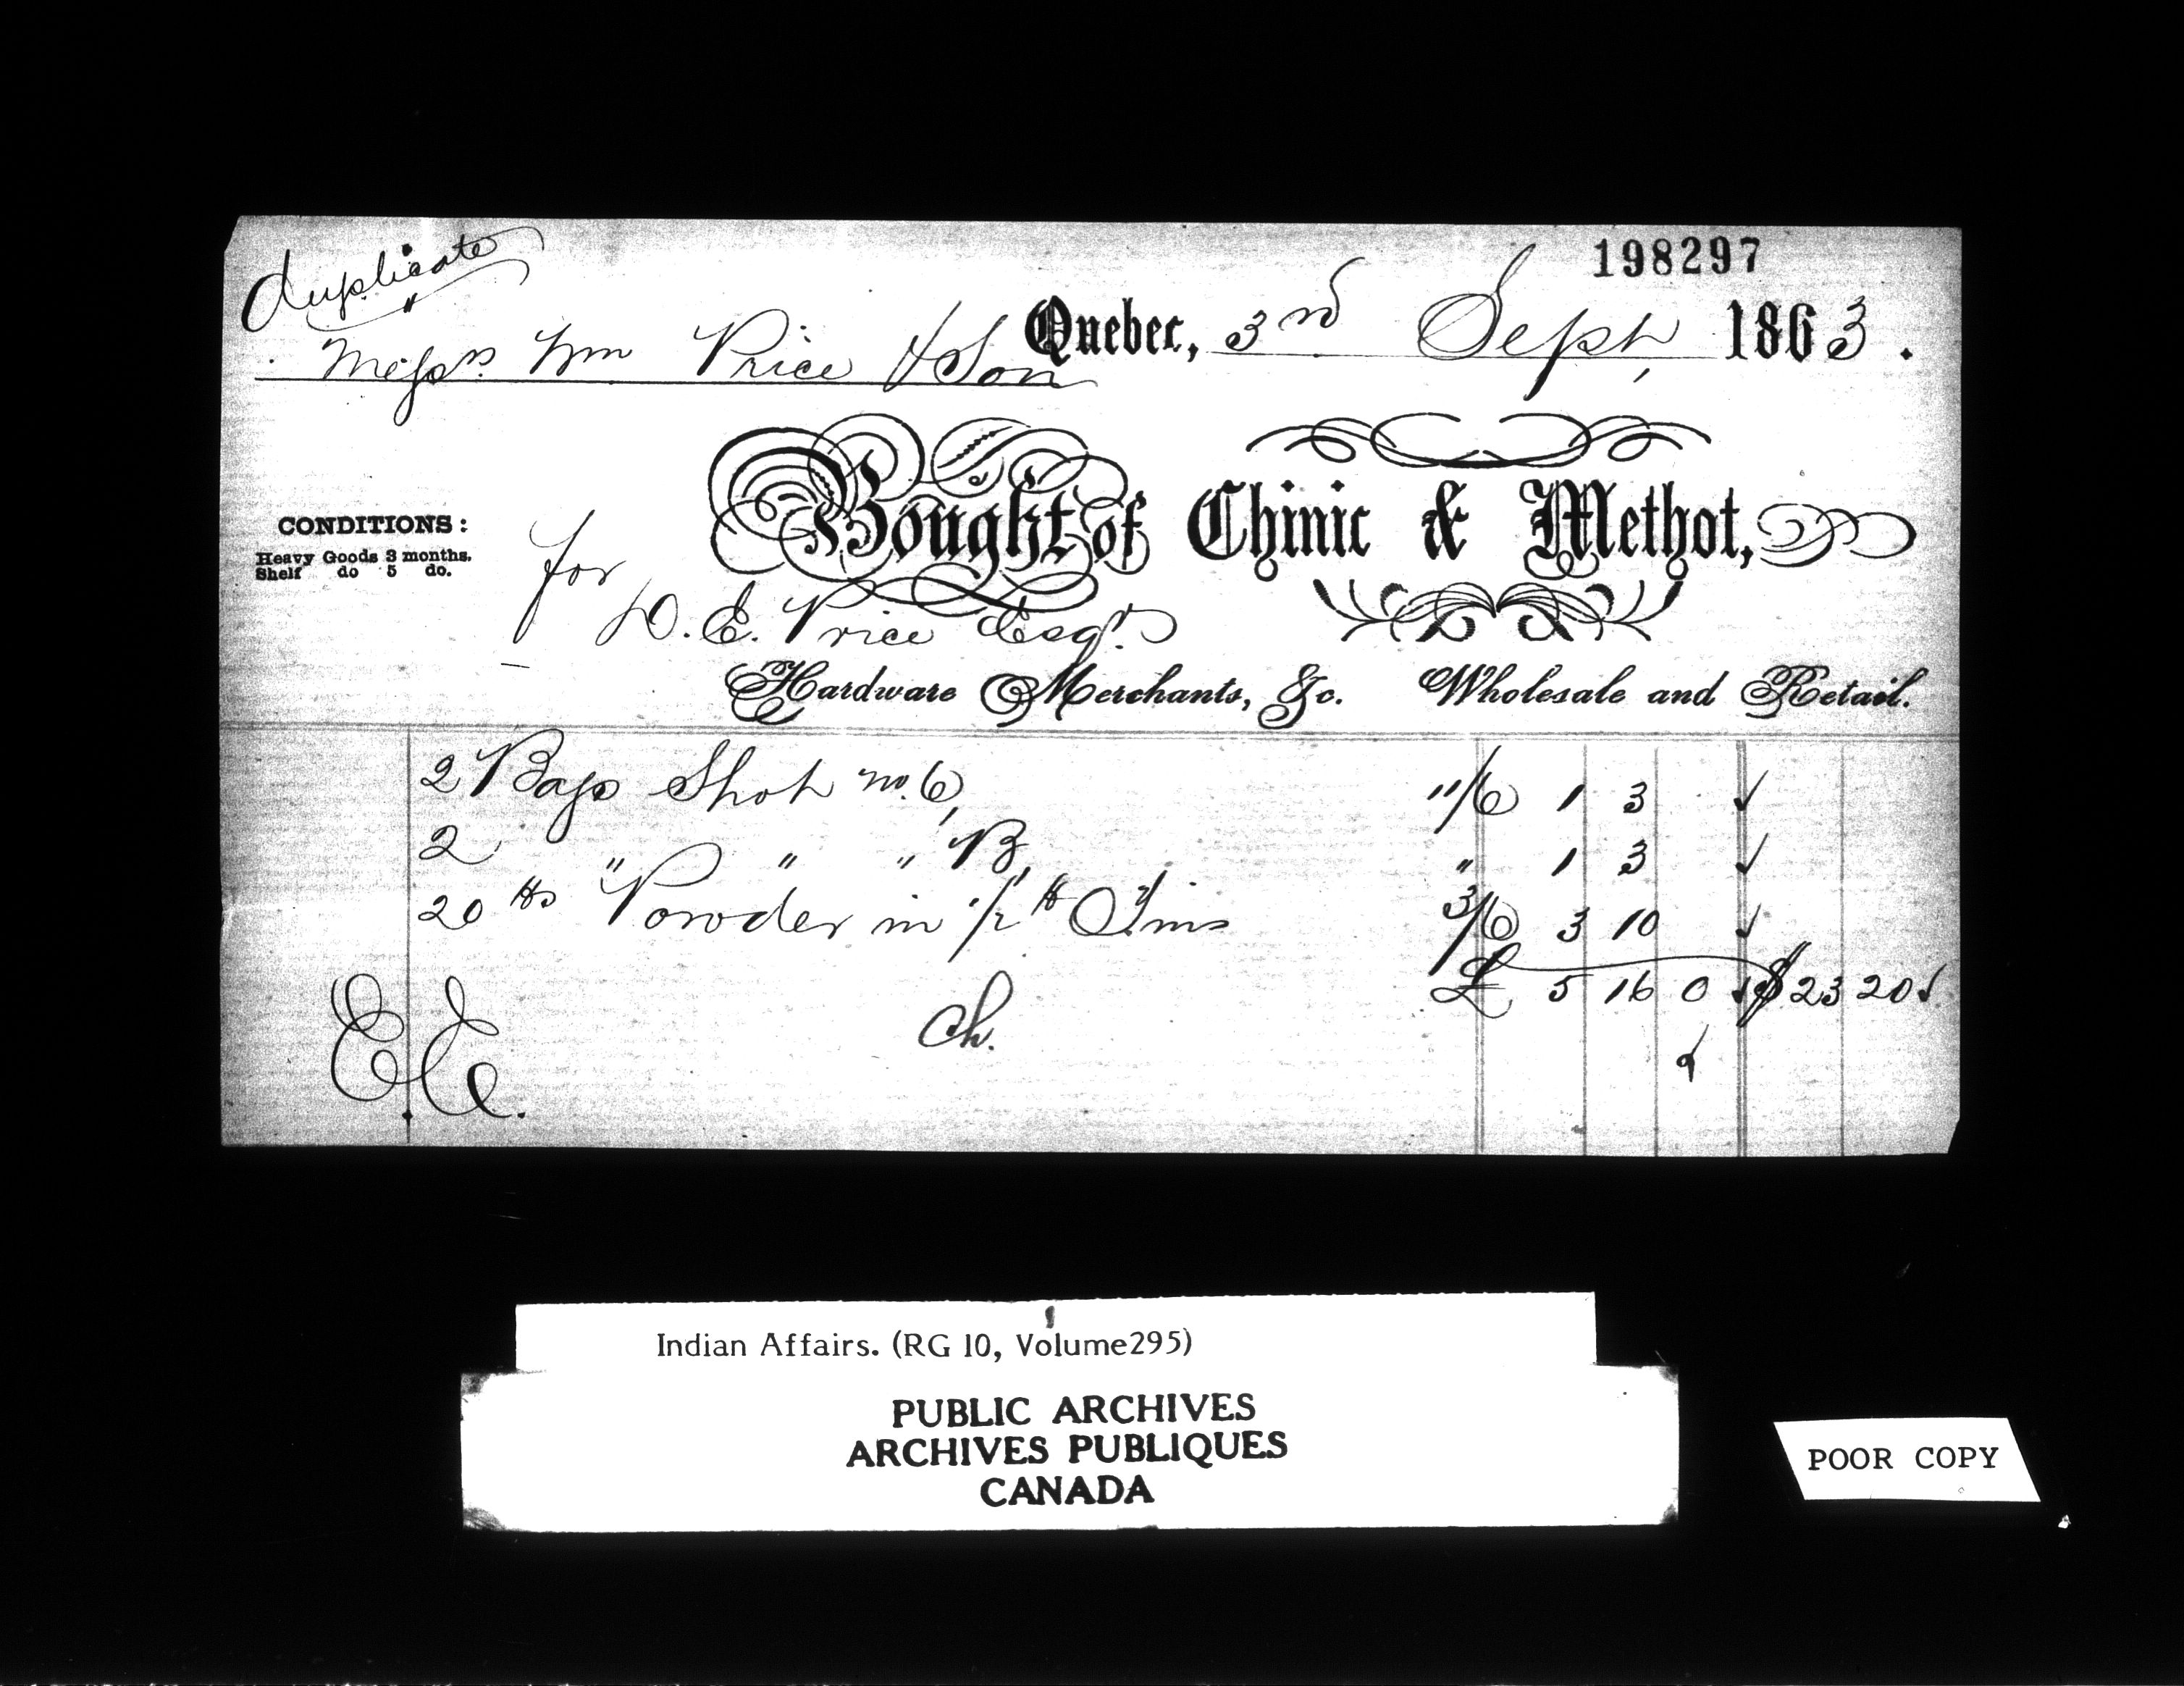 Duplicate
"
198297
Quebec, 3rd Sept, 1863.
Messrs Wm Price & Son
Bought of Chinic & Methot,
CONDITIONS:
Heavy Goods 3 months.
Shelf do 5 do.
for
D. E. Price Esqr
Hardware Merchants, &c. Wholesale and Retail.
2 Bags Shot no. 6, 11/6 1 3 ✓
2 " " " B, " 1 3 ✓
20 lbs Powder in 1/2 lb Tins 3/6 3 10 ✓
£ 5 16 0 ✓ $ 23 20 ✓
E. E.
Ch.
Indian Affairs. (RG 10, Volume295)
PUBLIC ARCHIVES
ARCHIVES PUBLIQUES
CANADA
POOR COPY